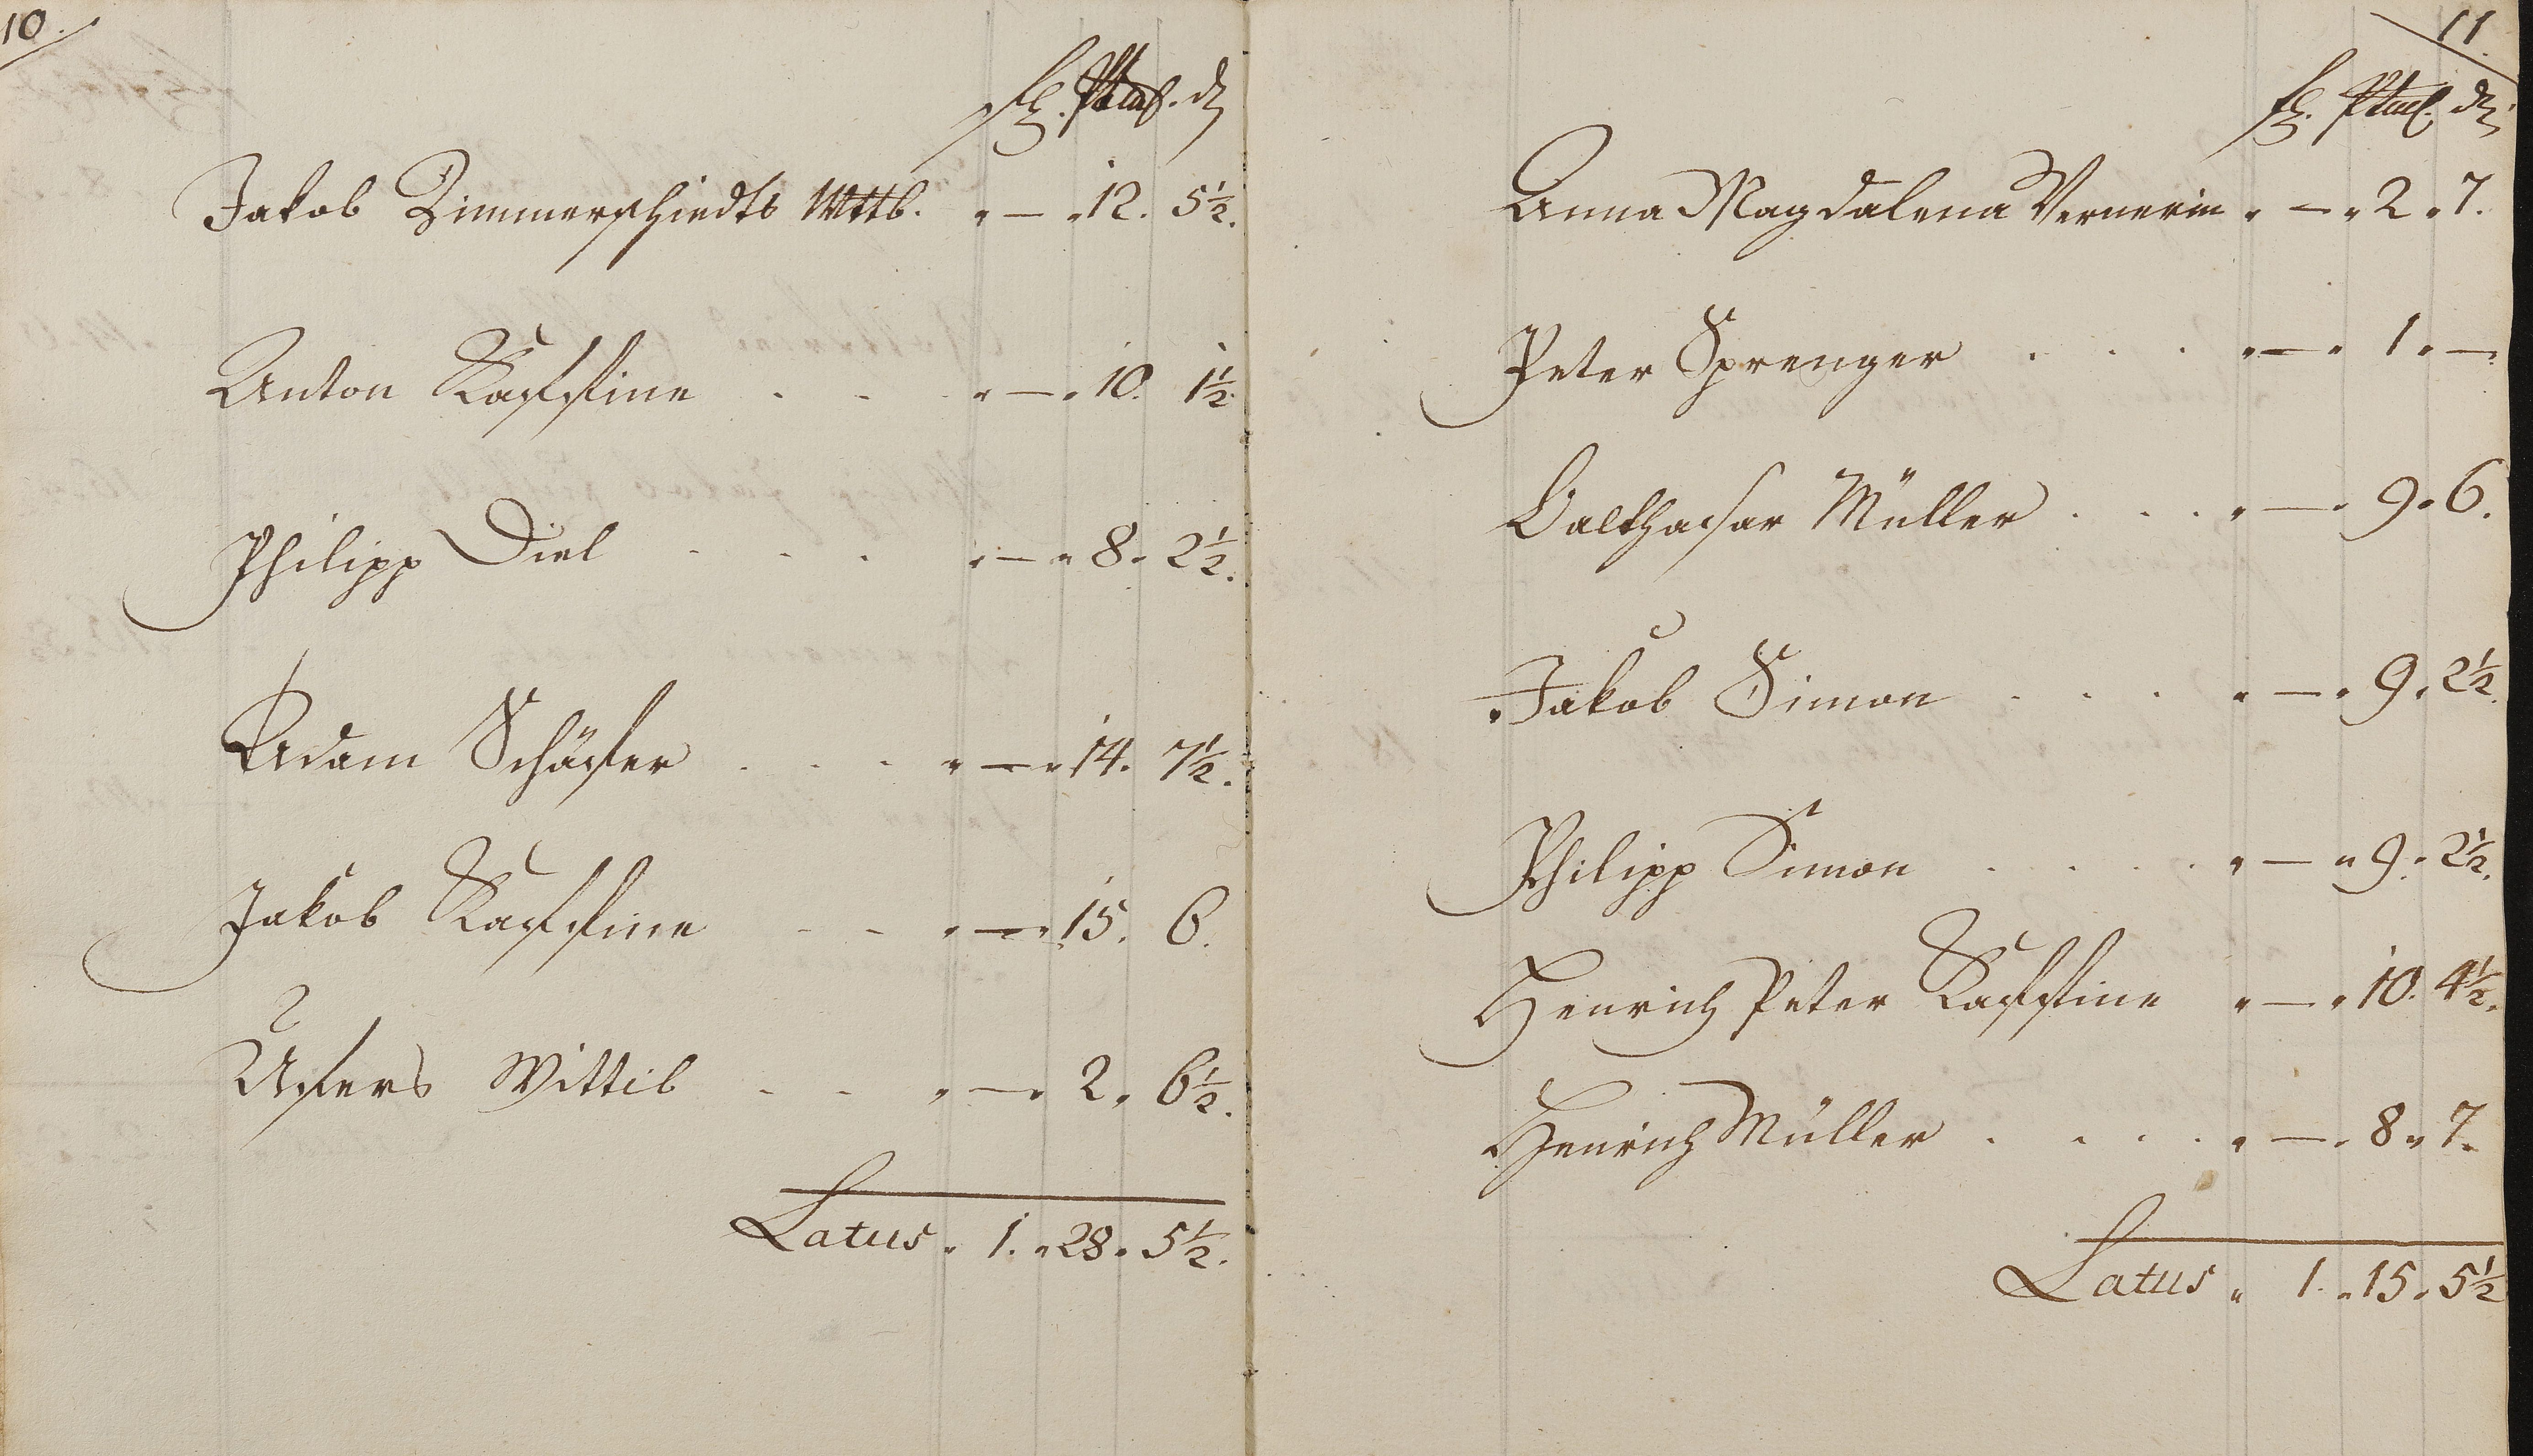 10.
fl. Stüb. d
Jakob Zimmerschiedts Wttb. " — " 12. 5½.
Anton Kaffine . . . " — " 10. 1½.
Philipp Diel . . . " — " 8 " 2½.
Adam Schäfer . . . " — " 14. 7½.
Jakob Kaffine . . " — " 15. 6.
Ufers Wittib . . " — " 2 " 6½.
Latus " 1. " 28 " 5½.
11.
fl. Stüb. d
Anna Magdalena Vernerin " — " 2 " 7.
Peter Sprenger . . . " — " 1 " —
Balthasar Müller . . . " — " 9 " 6.
Jakob Simon . . . " — " 9 " 2½.
Philipp Simon . . . . " — " 9 " 2½.
Henrich Peter Kaffine " — " 10. 4½.
Henrich Müller . . . . " — " 8 " 7.
Latus " 1. " 15 " 5½